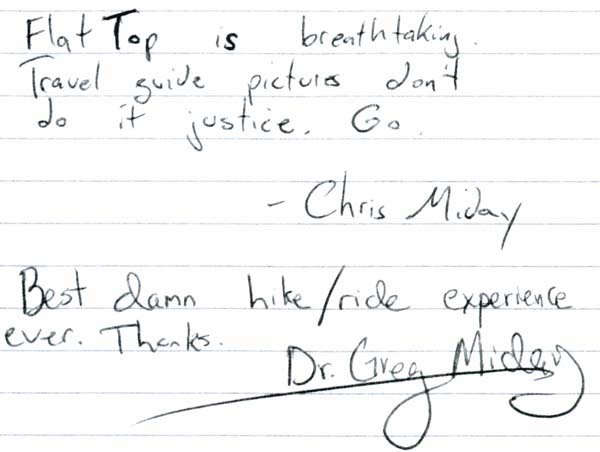 Flat Top is breathtaking.
Travel guide pictures don't
do it justice. Go.
- Chris Miday
Best damn hike/ride experience
ever. Thanks.
Dr. Greg Miday